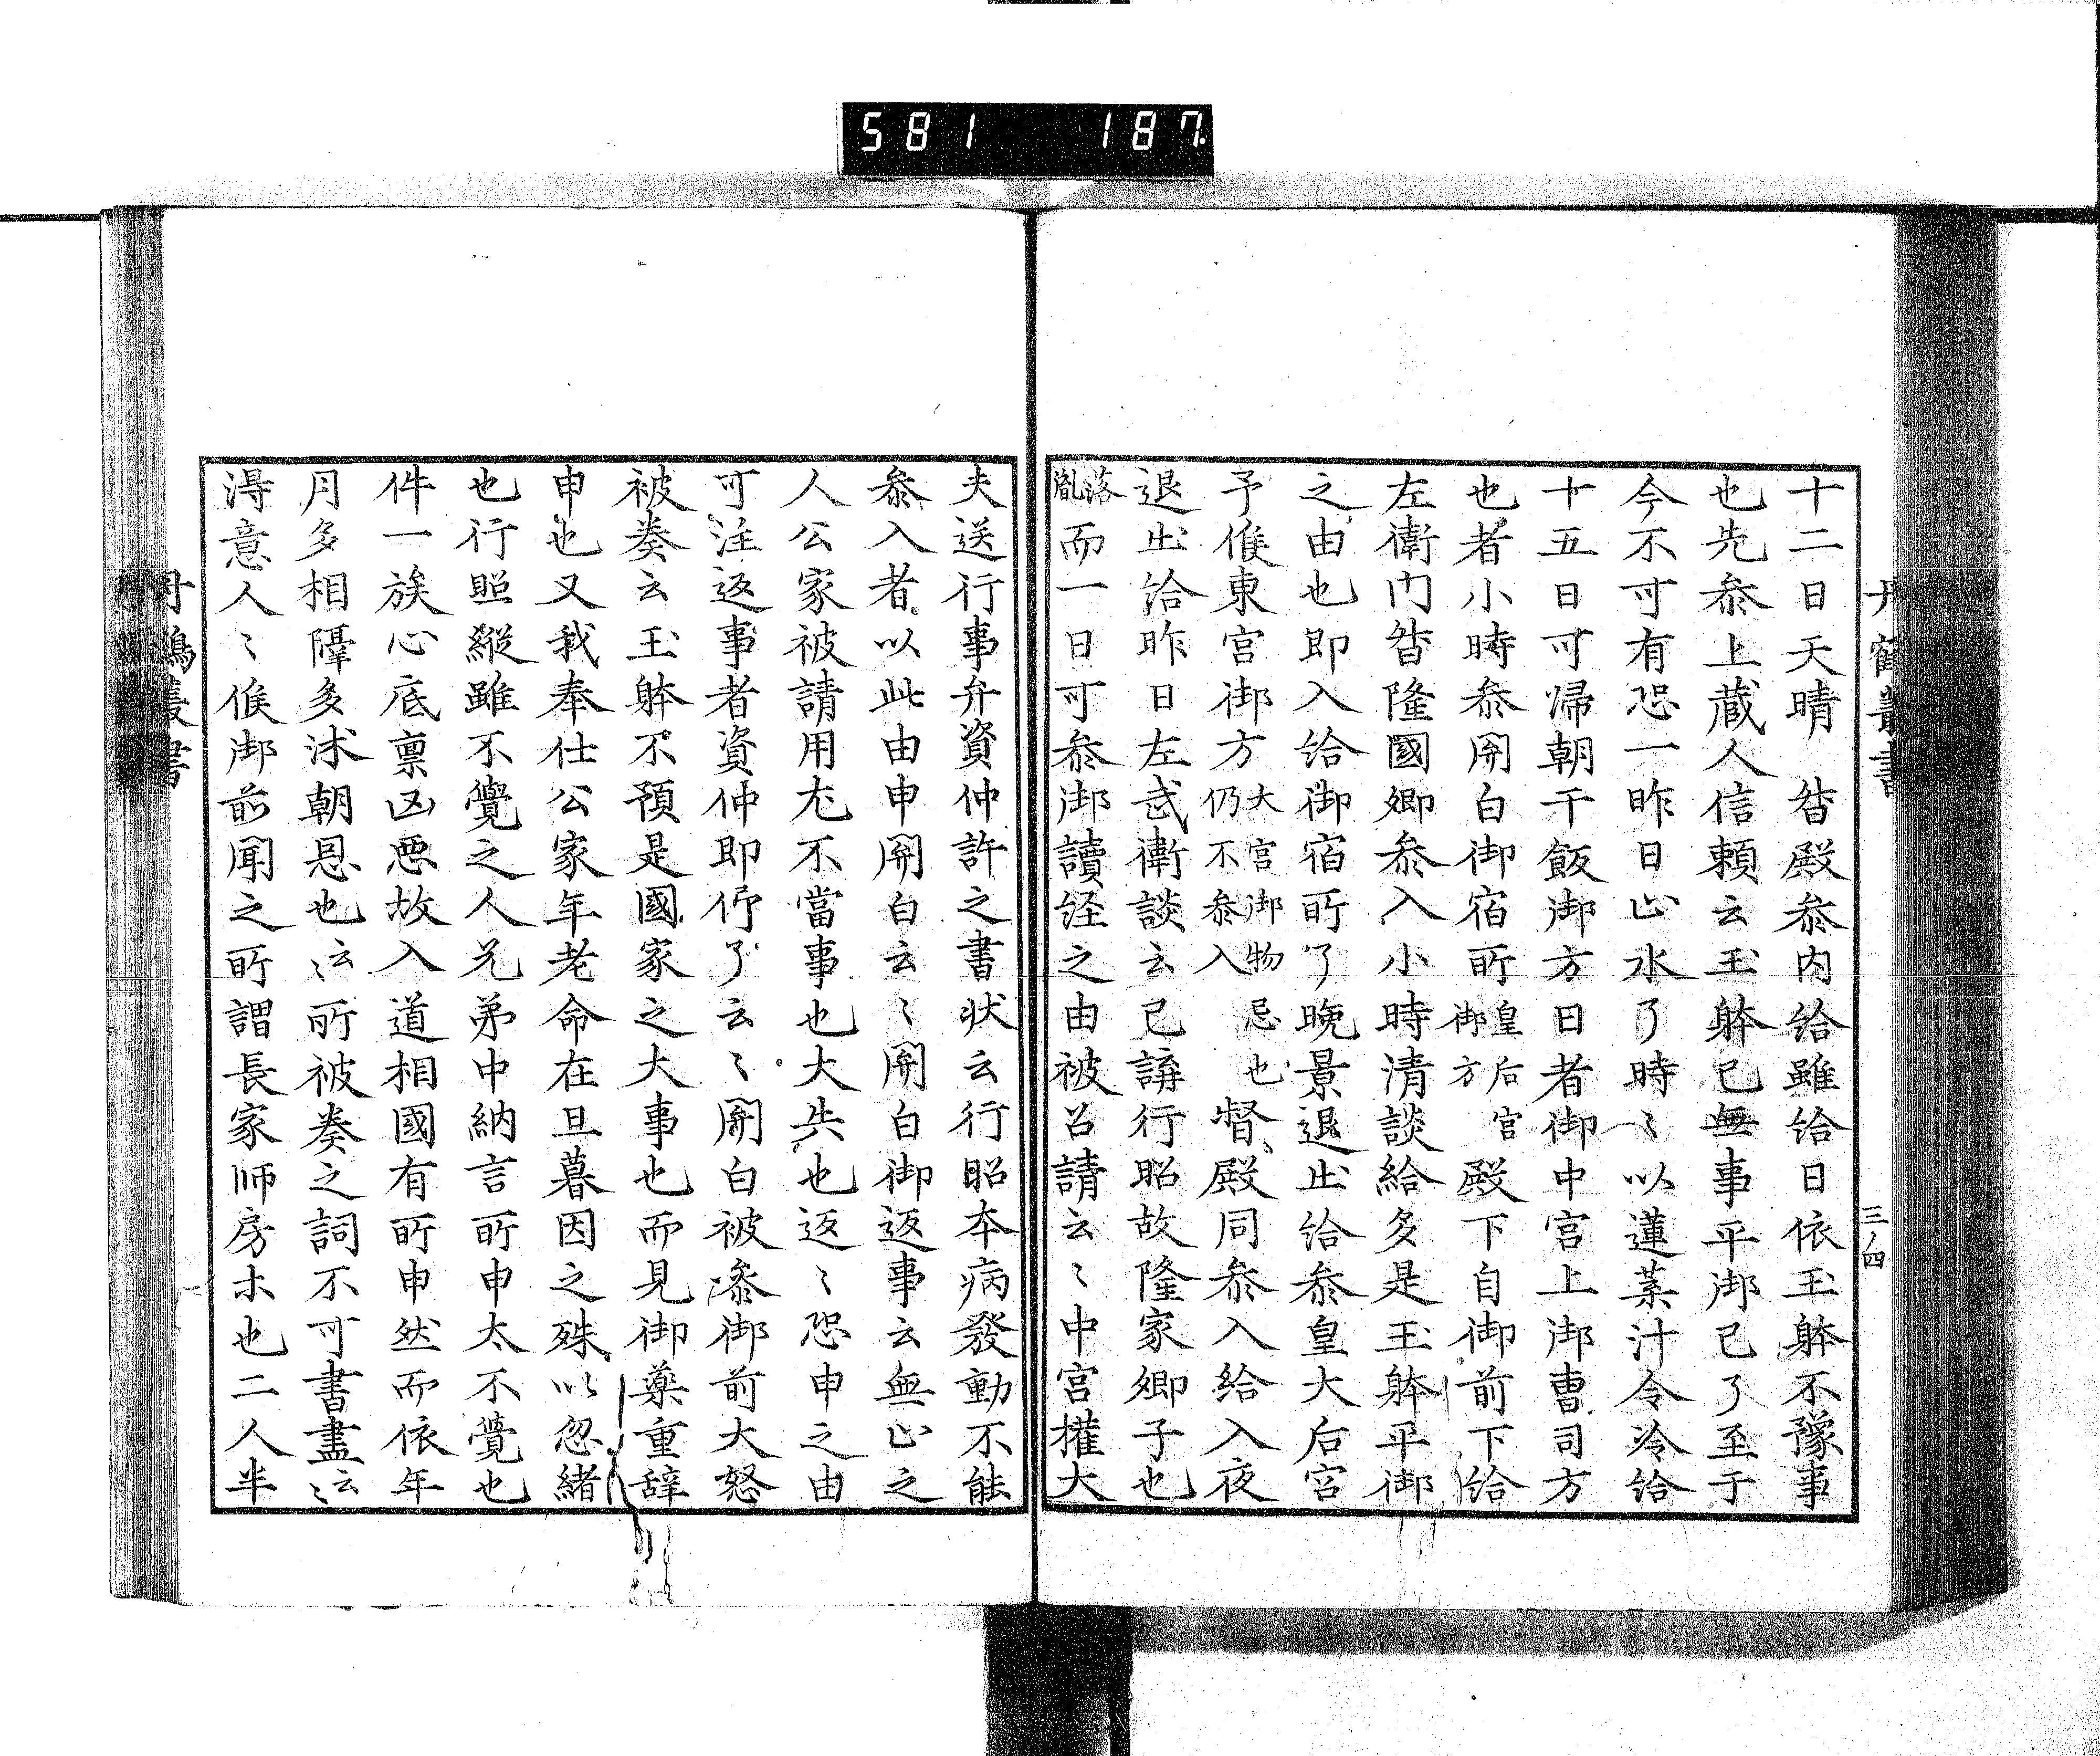 581 187
丹鶴叢書
三ノ四
十二日天晴 督殿叅内給雖給日依玉躰不豫事
也先叅上蔵人信頼云玉躰已無事平御已了至于
今不可有恐一昨日止水了時〻以蓮葉汁令冷給
十五日可帰朝干飯御方日者御中宮上御曹司方
也者小時叅関白御宿所皇后宮御方殿下自御前下給
左衛門督隆國卿叅入小時清談給多是玉躰平御
之由也即入給御宿所了晩景退出給叅皇大后宮
予候東宮御方大宮御物忌也仍不叅入督殿同叅入給入夜
退出給昨日左武衛談云已講行昭故隆家卿子也
落胤而一日可叅御讀経之由被召請云〻中宮権大
夫送行事弁資仲許之書状云行昭本病發動不能
叅入者以此由申関白云〻関白御返事云無止之
人公家被請用尤不當事也大失也返〻恐申之由
可注返事者資仲即仰了云〻関白被叅御前大怒
被奏云玉躰不預是國家之大事也而見御藥重辞
申也又我奉仕公家年老命在旦暮因之殊以忽緒
也行照縱雖不覺之人兄弟中納言所申太不覺也
件一族心底禀凶悪故入道相國有所申然而依年
月多相隔多沭朝恩也云〻所被奏之詞不可書盡云〻
得意人〻候御前聞之所謂長家師房ホ也二人半
丹鶴叢書